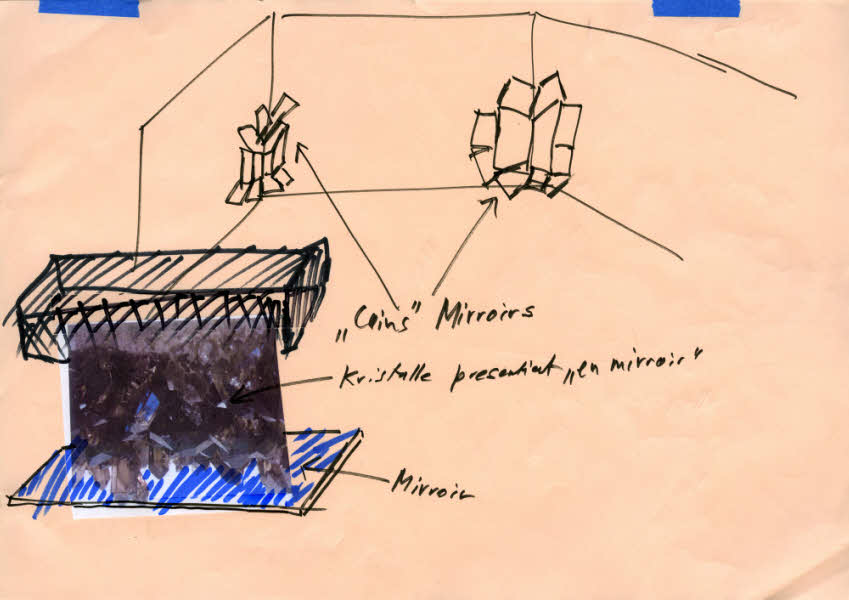 „Coins" Mirroirs
Kristalle presentiert „en mirroir"
Mirroir